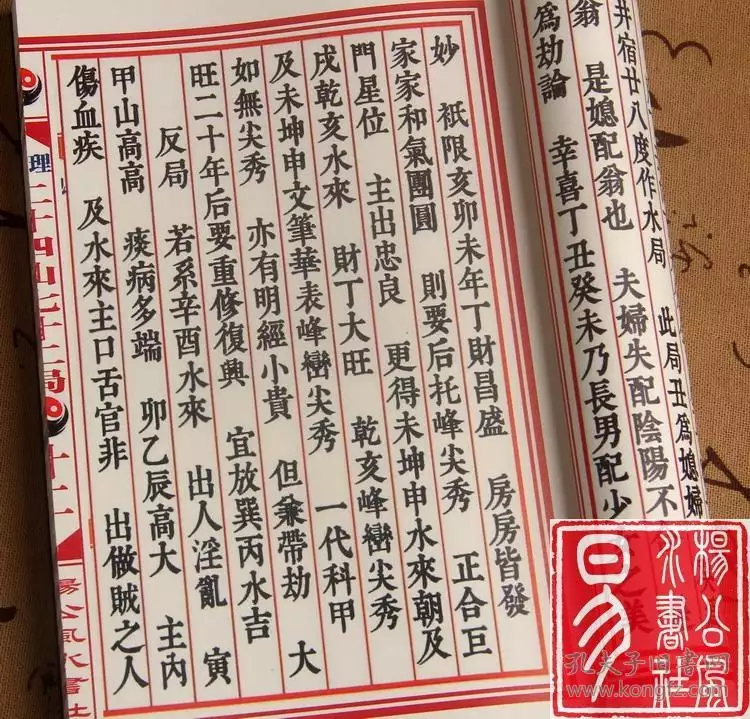 井宿廿八度作水局 此局丑爲媳婦
翁 是媳配翁也 夫婦失配陰陽不
爲劫論 幸喜丁丑癸未乃長男配少
妙 祇限亥卯未年丁財昌盛 房房皆發
家家和氣團圓 則要后托峰尖秀 正合巨
門星位 主出忠良 更得未坤申水來朝及
戌乾亥水來 財丁大旺 乾亥峰巒尖秀
及未坤申文筆華表峰巒尖秀 一代科甲
如無尖秀 亦有明經小貴 但兼帶劫 大
旺二十年后要重修復興 宜放巽丙水吉
反局 若系辛酉水來 出人淫亂 寅
甲山高高 痰病多端 卯乙辰高大 主內
傷血疾 及水來主口舌官非 出做賊之人
理 二十四山七十二局 十二 楊公風水書社
楊公風水書社
易
孔夫子旧书网
www.kongfz.com